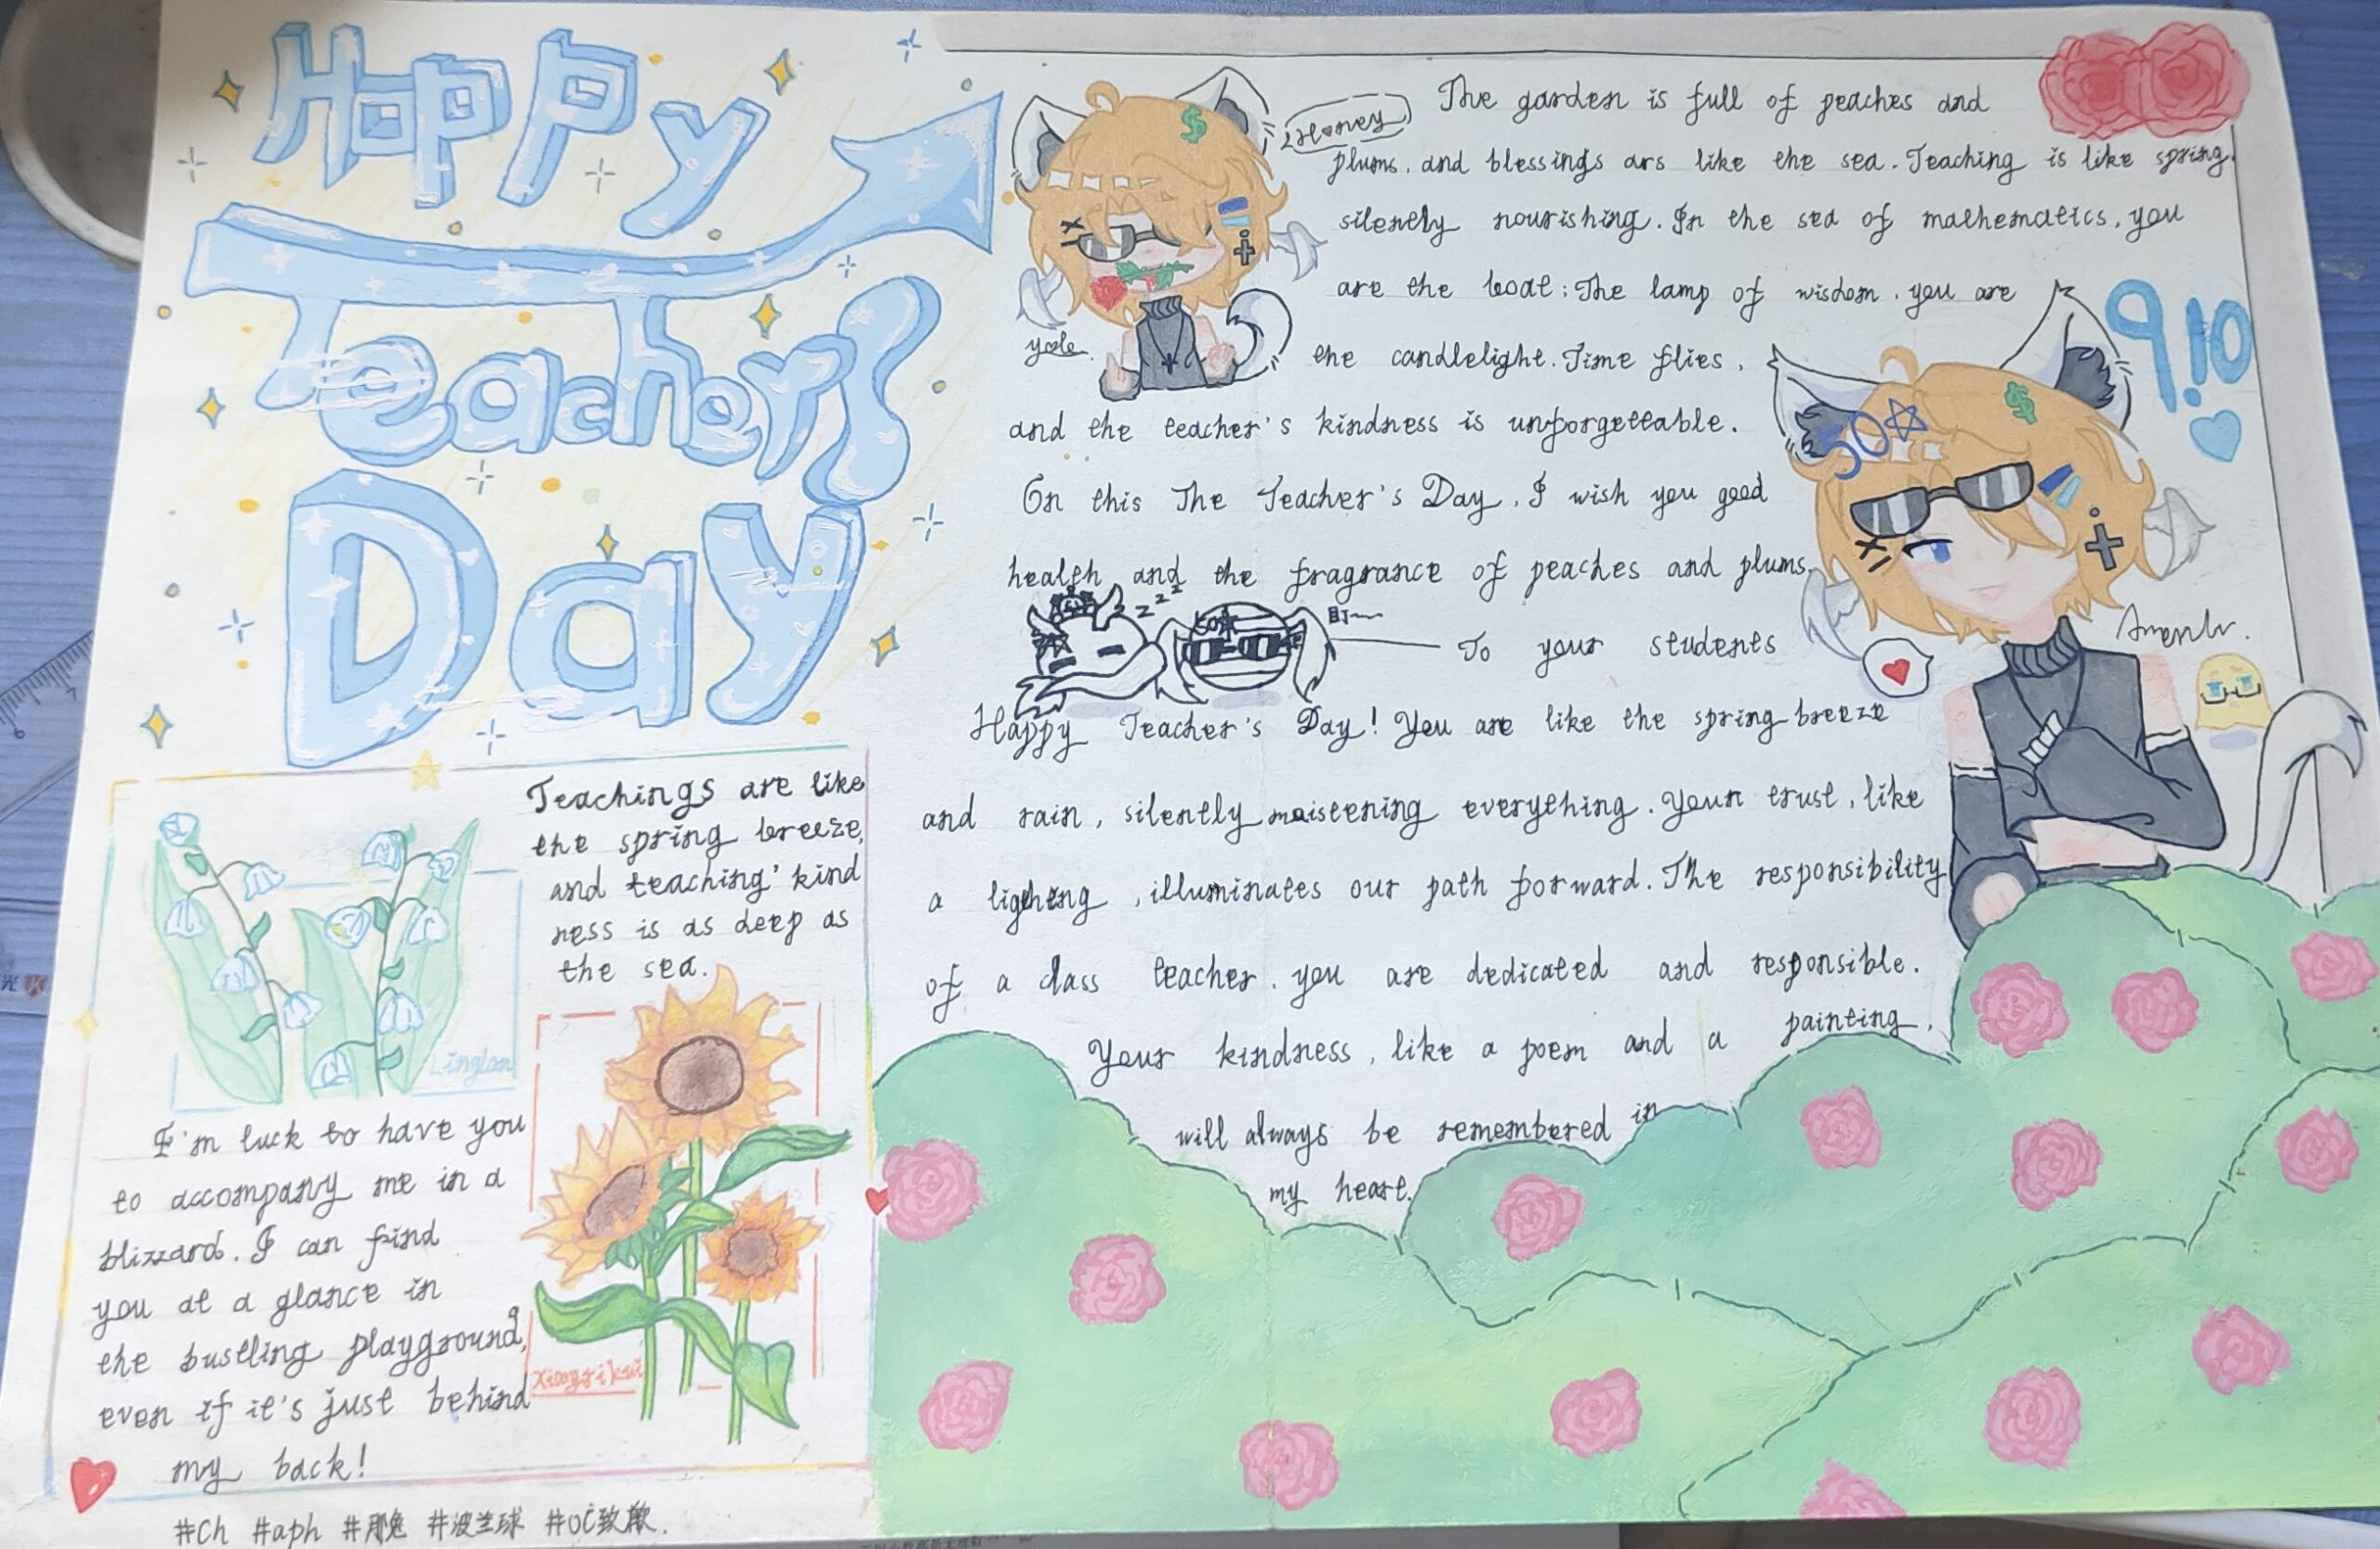 Happy
Teachers
Day
Honey
The garden is full of peaches and
plums, and blessings ars like the sea. Teaching is like spring.
silently nourishing. In the sea of mathematics, you
are the boat; The lamp of wisdom, you are
the candlelight. Time flies,
and the teacher's kindness is unforgettable.
On this The Teacher's Day, I wish you good
health and the fragrance of peaches and plums.
zzzz
50☆
盯~
To your students
Happy Teacher's Day! You are like the spring breeze
and rain, silently moistening everything. Your trust, like
a , illuminates our path forward. The responsibility
of a class teacher, you are dedicated and responsible.
Your kindness, like a poem and a painting,
will always be remembered in
my heart.
9.10
50☆
$
$
Teachings are like
the spring breeze,
and teaching' kind
ness is as deep as
the sea.
Linglan
Xiangrikui
I'm luck to have you
to accompany me in a
blizzard. I can find
you at a glance in
the bustling playground,
even if it's just behind
my back!
#Ch #aph #那兔 #波兰球 #OC致歉.